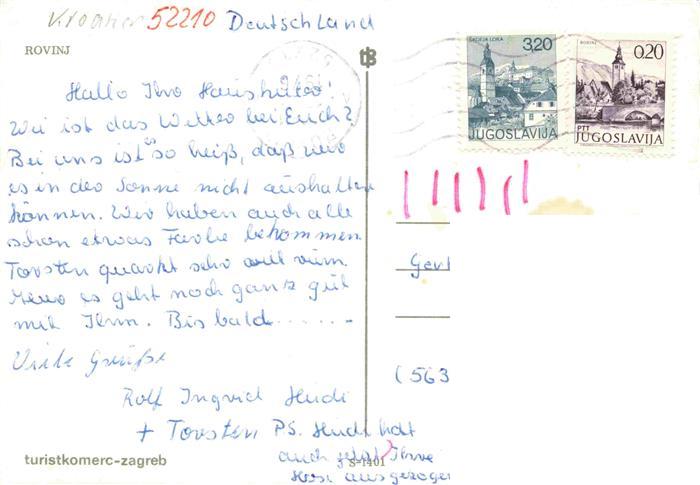 Kroatien 52210 Deutschland
ROVINJ
Hallo Ihr Haushüter!
Wie ist das Wetter bei Euch?
Bei uns ist es so heiß, daß wir
es in der Sonne nicht aushalten
können. Wir haben auch alle
schon etwas Farbe bekommen.
Torsten quarkt sehr viel rum.
Aber es geht noch ganz gut
mit Ihm. Bis bald......
Viele Grüße
Rolf Ingrid Heidi
+ Torsten PS. Heidi hat
auch jetzt Ihre
Hose ausgezogen
turistkomerc-zagreb
S-1401
ŠKOFJA LOKA
3,20
JUGOSLAVIJA
0,20
PTT
JUGOSLAVIJA
Gevl
(563